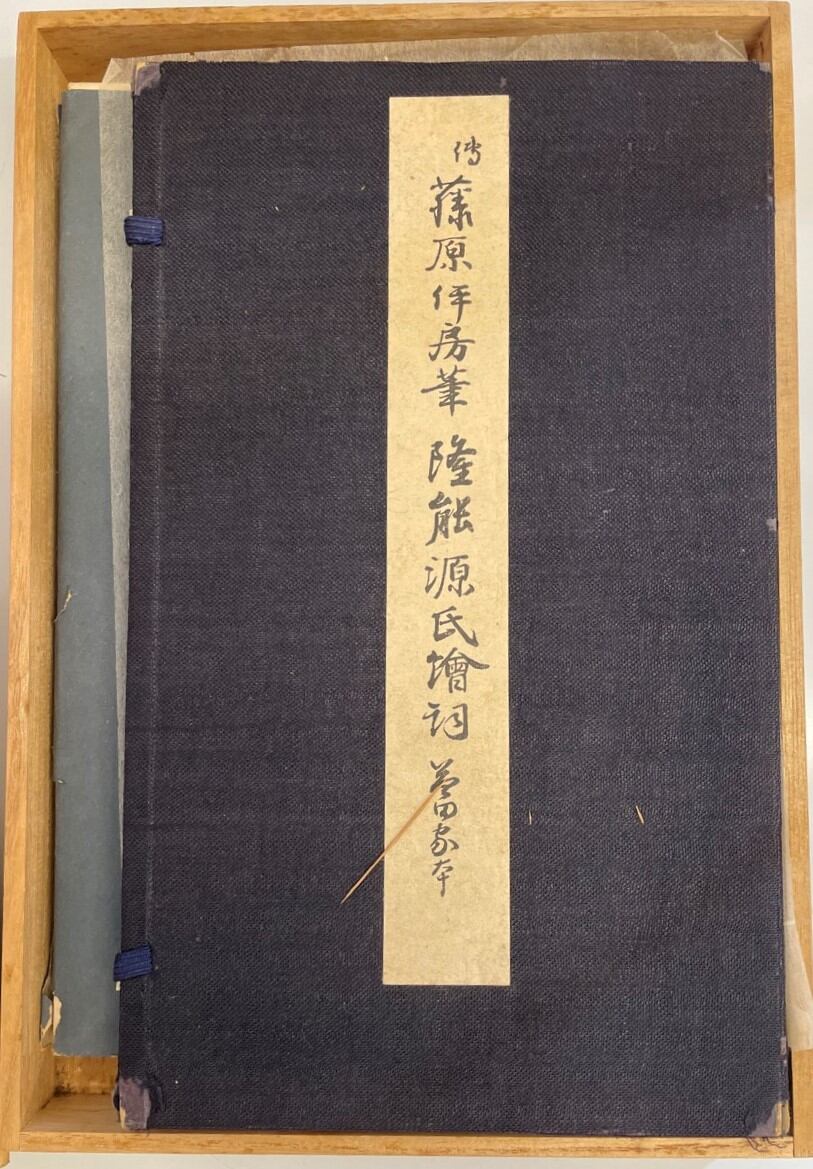 傳藤原伊房筆 隆能源氏繪詞 益田家本